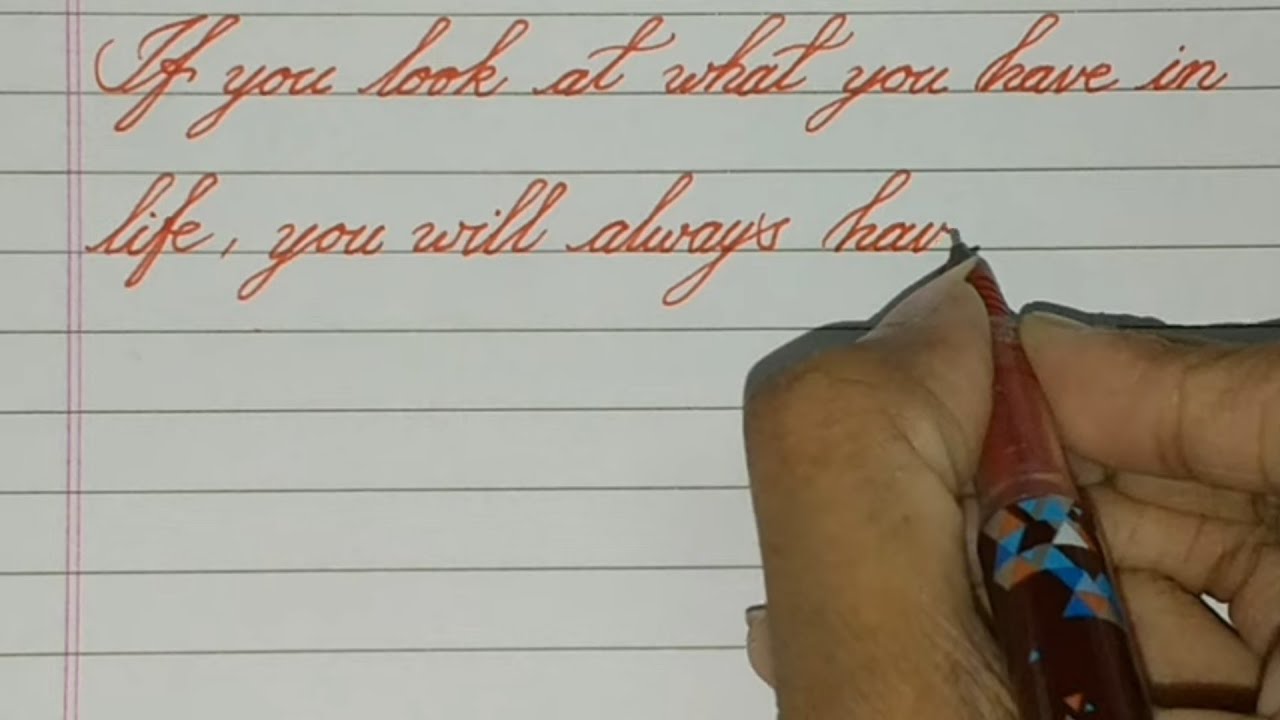 If you look at what you have in
life, you will always hav